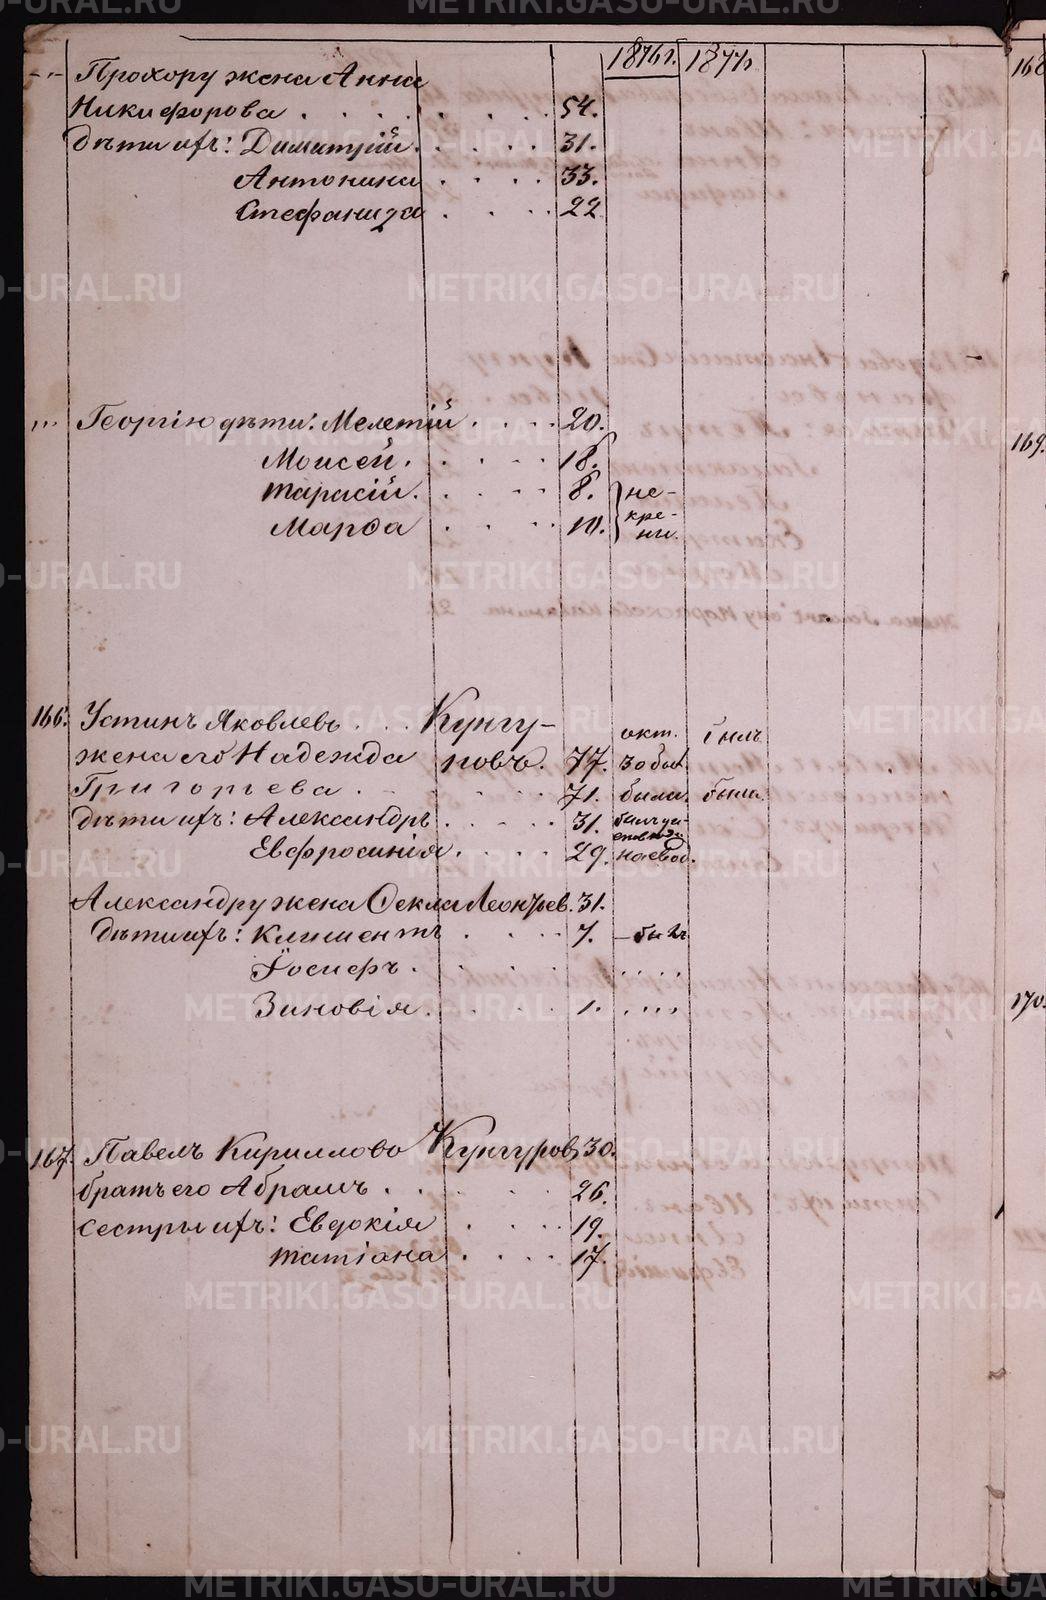 1876г. 1877г.
-"- Прохору жена Анна
Никифорова . . . . . . . . 54.
дѣти ихъ: Димитрій . . . . . 31.
Антонина . . . . 33.
Стефанида . . . . 22
"" Георгію дѣти: Мелетій . . . . 20.
Моисей . . . . . 18.
Тарасій . . . . . 8. не-
Марѳа . . . . 10. кре-
ще.
166. Устинъ Яковлевъ . . . Кунгу- окт. былъ
жена его Надежда ровъ. 77. 30 был
Григорьева . . . . . . 71. была. была
дѣти ихъ: Александръ . . . . . 31.
Евфросинія . . . . 29.
Александру жена Ѳекла Леонтьев. 31.
дѣти ихъ: Климентъ . . . . 7. – былъ
Іосифъ . . . . . . . . . .
Зиновія . . . . . 1. . . . .
167. Павелъ Кириллово Кунгуровъ 30.
братъ его Абрамъ . . . . . 26.
сестры ихъ: Евдокія . . . . 19.
Татіана . . . . 17.
168
169.
170.
METRIKI.GASO-URAL.RU